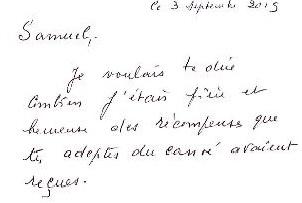 le 3 septembre 2019
Samuel,
Je voulais te dire
combien j'étais fière et
heureuse des récompenses que
tes adeptes du carré avaient
reçues.